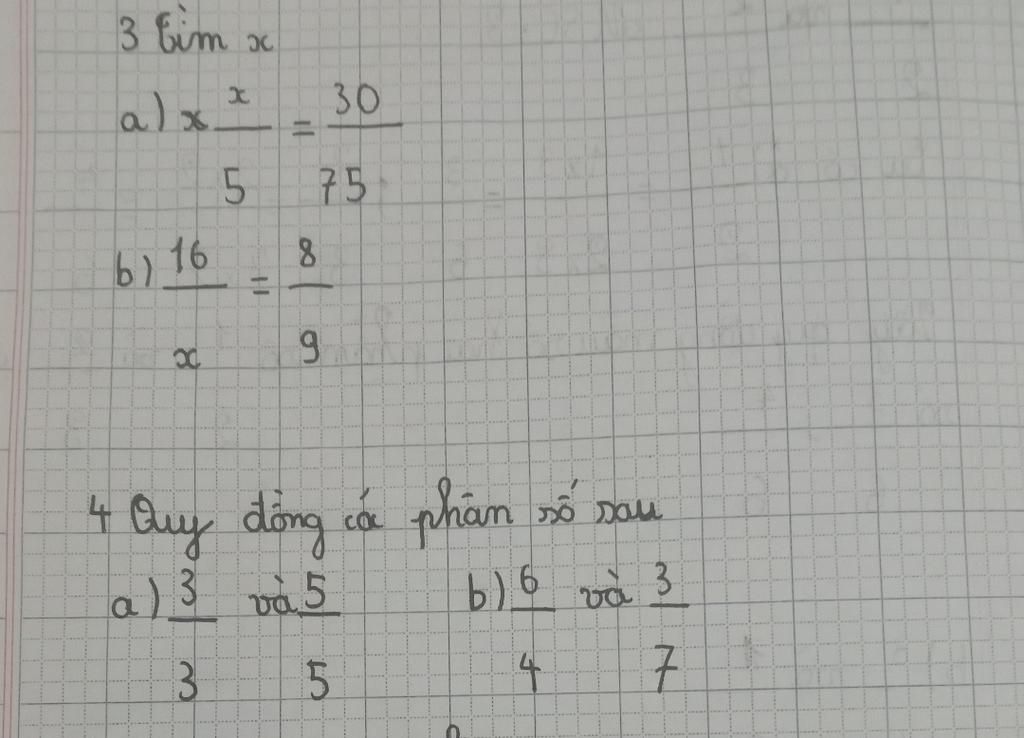 3 Tìm x
a) x x/5 = 30/75
b) 16/x = 8/9
4 Quy đồng các phân số sau
a) 3/3 và 5/5 b) 6/4 và 3/7